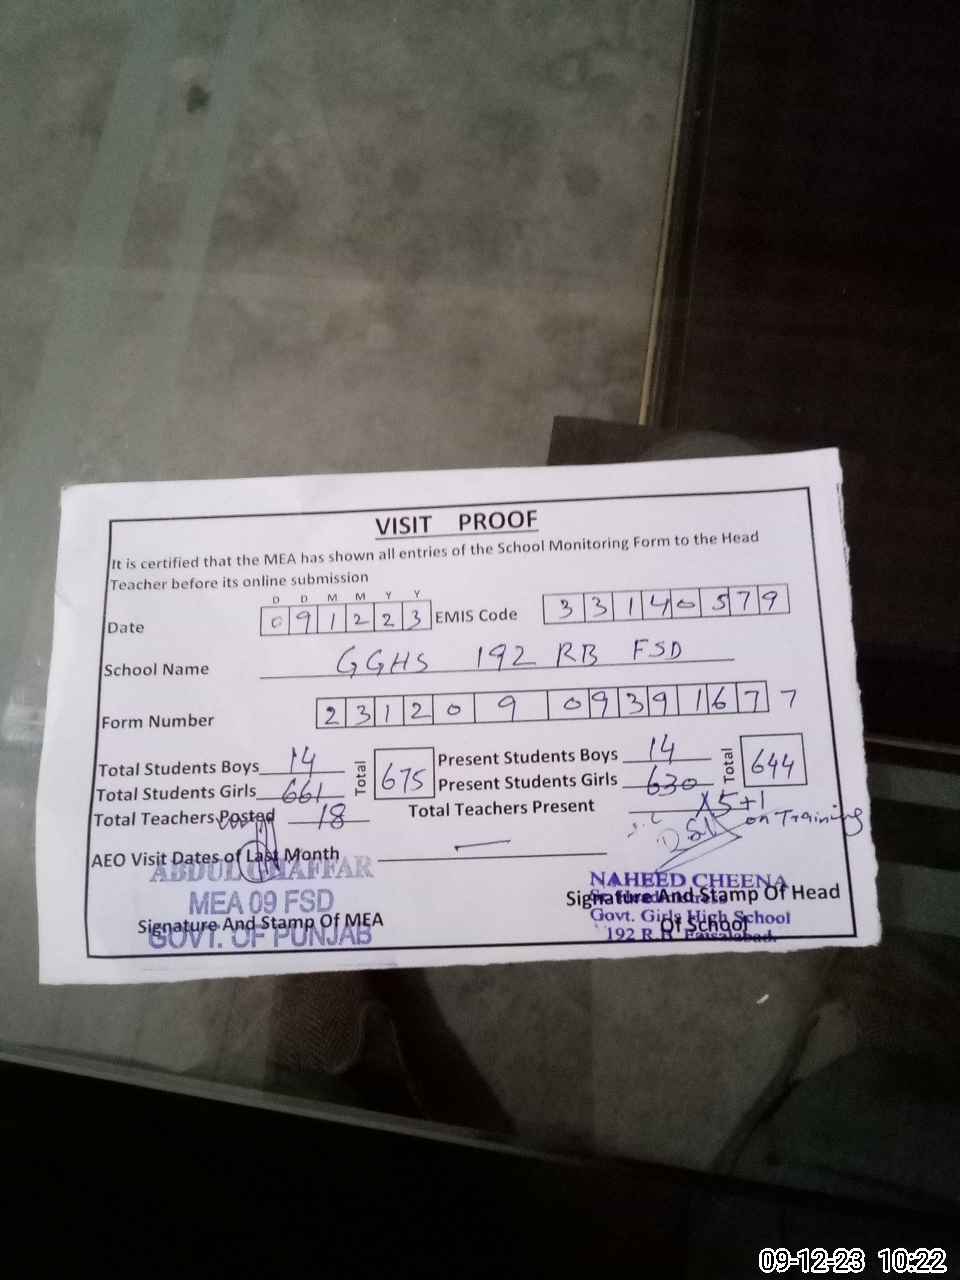 VISIT PROOF
It is certified that the MEA has shown all entries of the School Monitoring Form to the Head
Teacher before its online submission
D D M M Y Y
Date 0 9 1 2 2 3 EMIS Code 3 3 1 4 0 5 7 9
School Name GGHS 192 RB FSD
Form Number 2 3 1 2 0 9 0 9 3 9 1 6 7 7
Total Students Boys 14 Total 675 Present Students Boys 14 Total 644
Total Students Girls 661 Present Students Girls 630
Total Teachers Posted 18 Total Teachers Present 15+1
on Training
AEO Visit Dates of Last Month —
ABDUL GHAFFAR
MEA 09 FSD
Signature And Stamp Of MEA
GOVT. OF PUNJAB
NAHEED CHEENA
Signature And Stamp Of Head
Govt. Girls High School
Of School
192 R.B. Faisalabad.
09-12-23 10:22